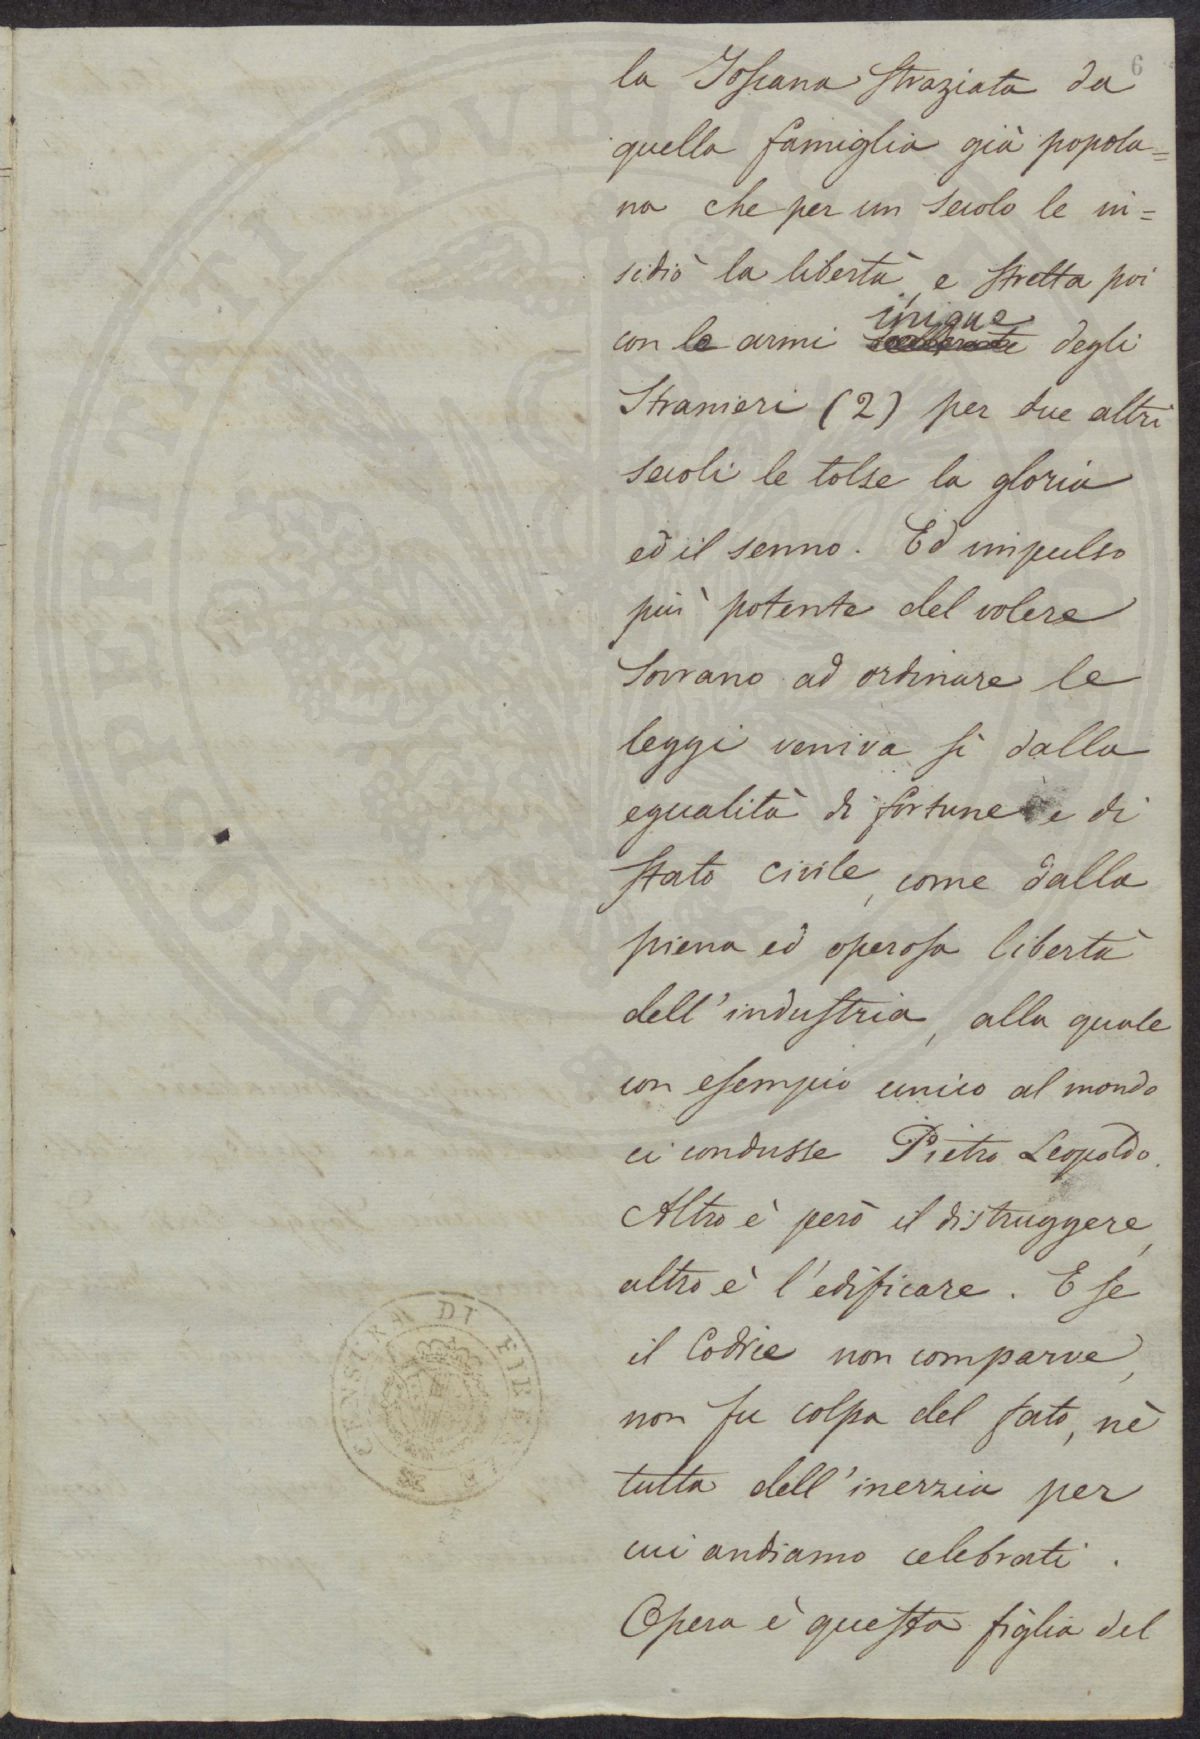 6
la Toscana straziata da
quella famiglia già popola=
na che per un secolo le in=
sidiò la libertà, e stretta poi
inique
con le armi degli
Stranieri (2) per due altri
secoli le tolse la gloria
ed il senno. Ed impulso
più potente del volere
Sovrano ad ordinare le
leggi veniva sì dalla
egualità di fortune e di
stato civile, come dalla
piena ed operosa libertà
dell'industria, alla quale
con esempio unico al mondo
ci condusse Pietro Leopoldo.
Altro è però il distruggere,
altro è l'edificare. E se
il Codice non comparve,
non fu colpa del fato, nè
tutta dell'inerzia per
cui andiamo celebrati.
Opera è questa figlia del
CENSURA DI FIRENZE